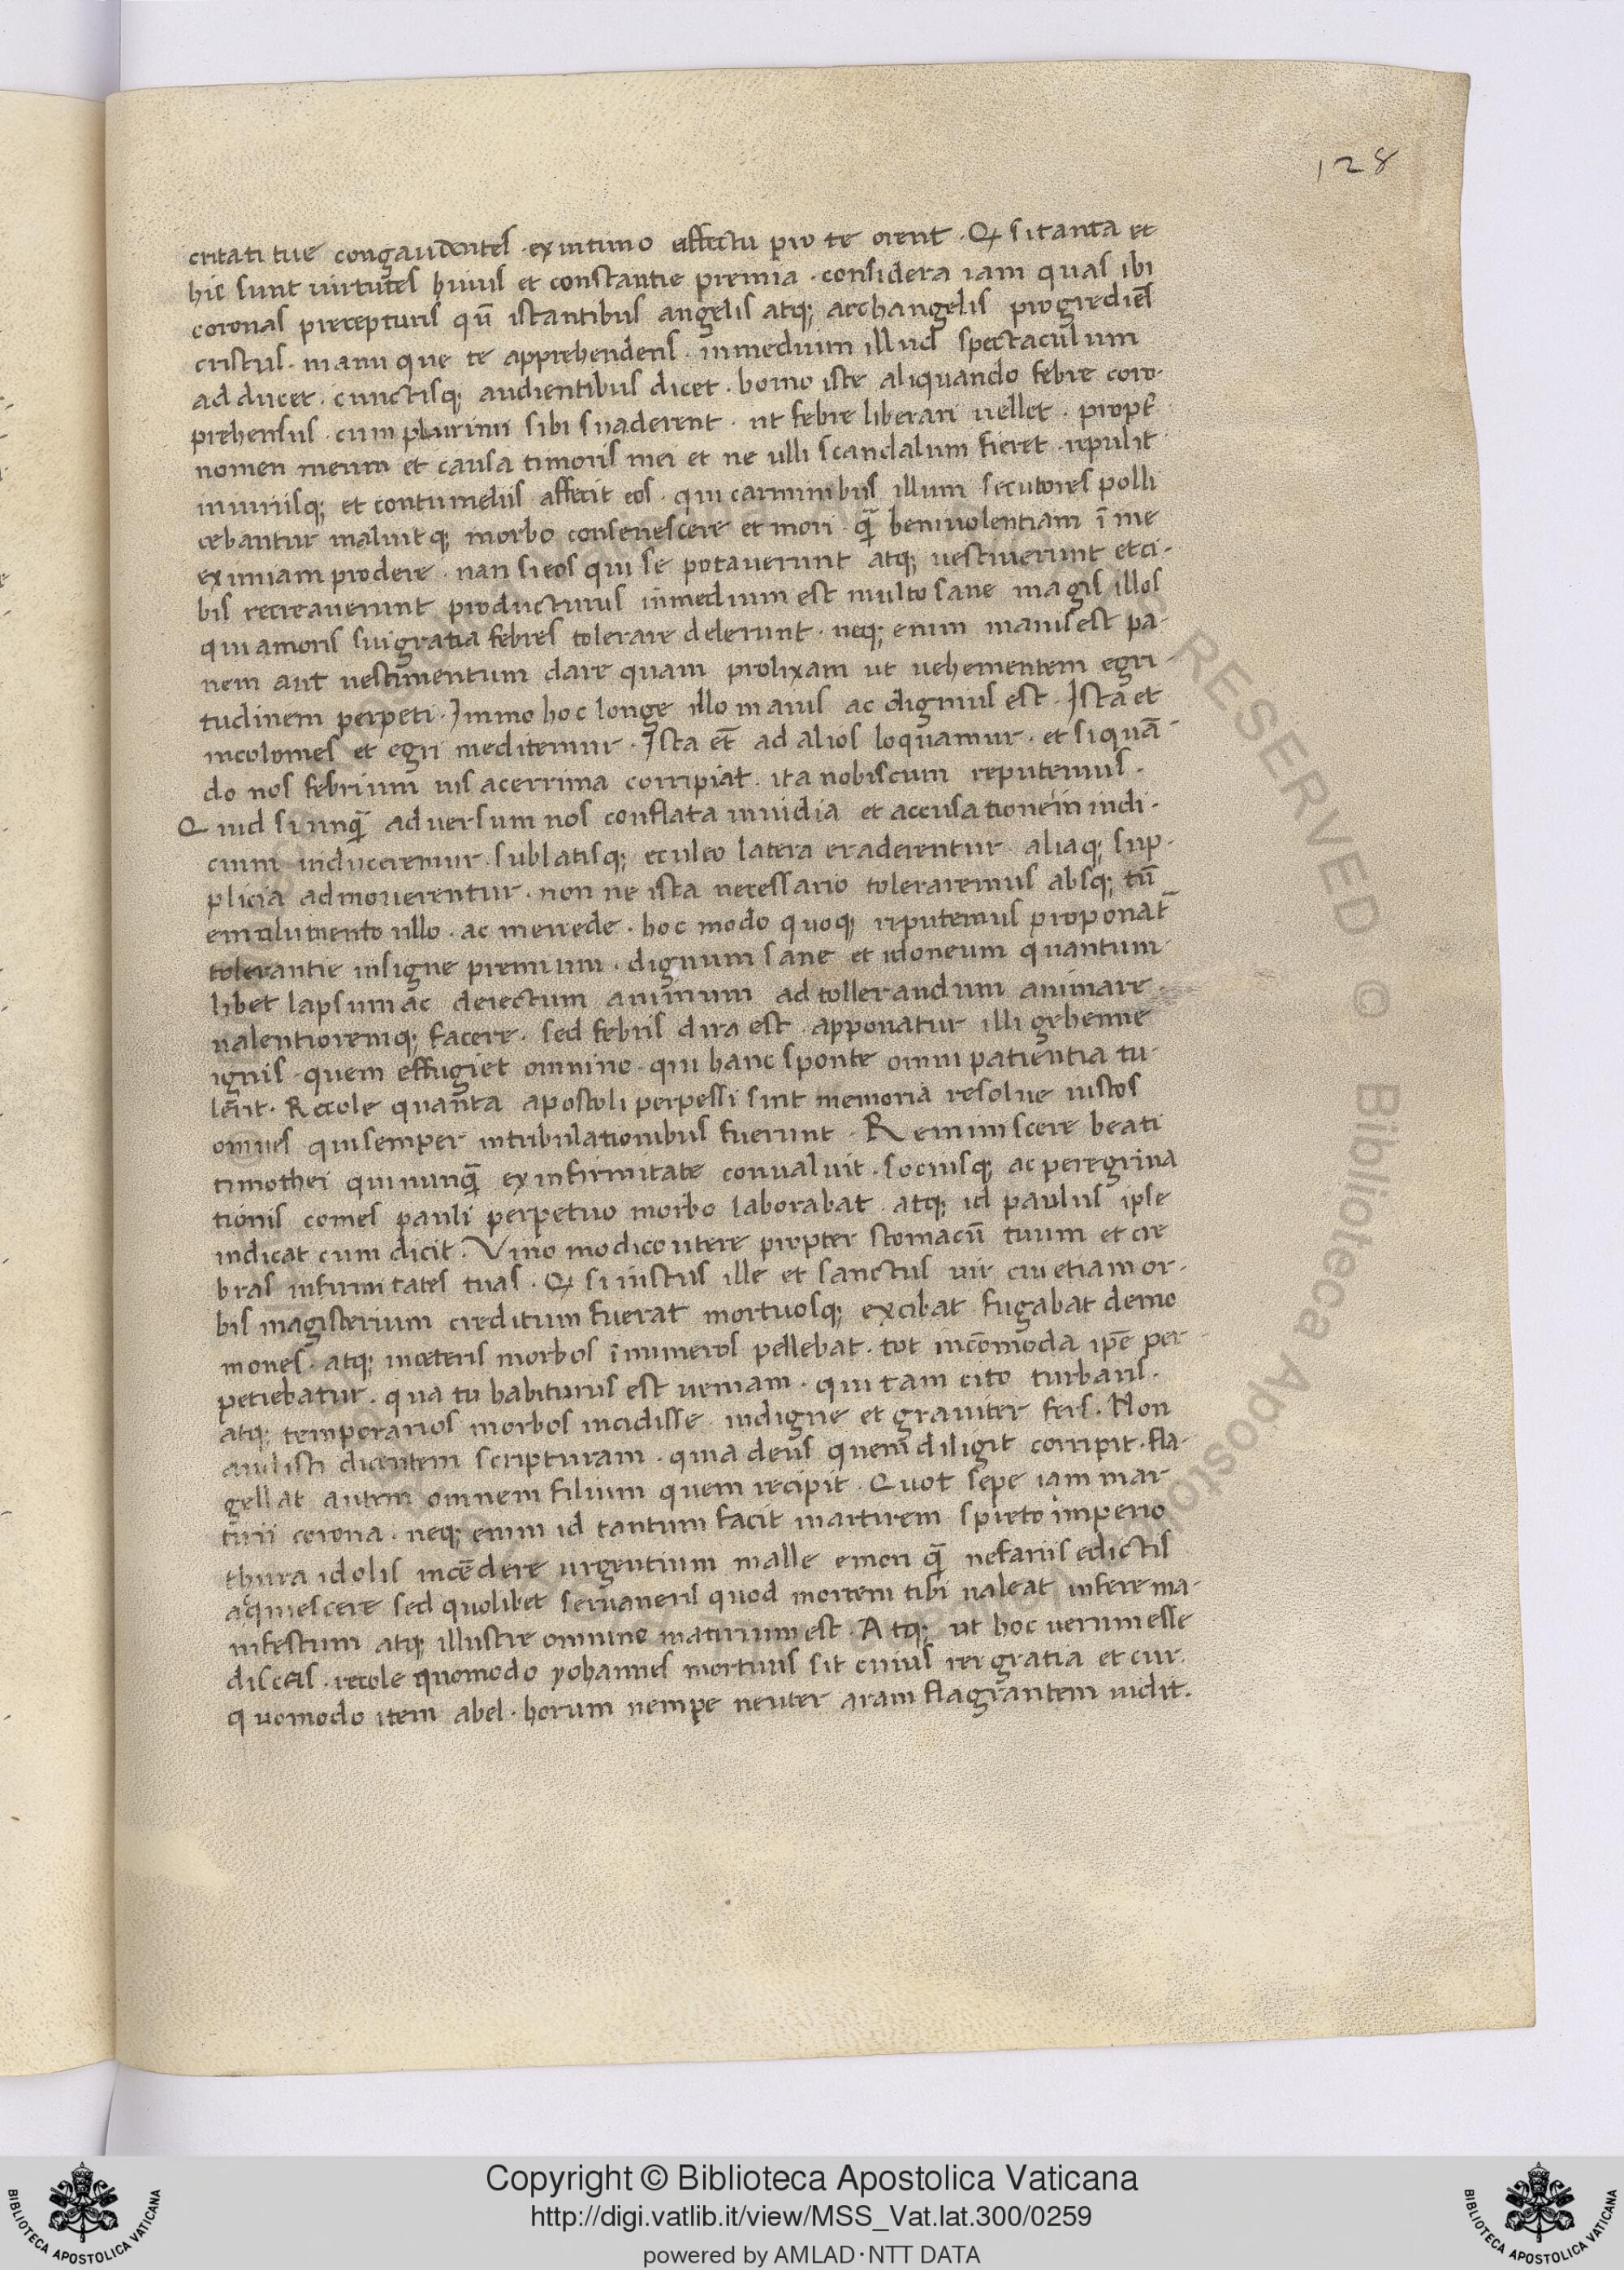 128
critati tue congaudentes · ex intimo affectu pro te orent · Q si tanta et
hic sunt uirtutes huius et constantie premia · considera iam quas ibi
coronas precepturis qu̅ istantibus angelis atq; archangelis progredie̅s
cristus · manu que te apprehendens · in medium illud spectaculum
ad ducet · cunctisq; audientibus dicet · homo iste aliquando febre coro-
prehensus · cum plurimi sibi suaderent · ut febre liberari uellet · propt̅
nomen meum et causa timoris mei et ne ulli scandalum fieret · repulit
iniuriisq; et contumeliis affecit eos · qui carminibus illum secutores polli
cebantur maluit q; morbo consenescere et mori · q̅ beniuolentiam i̅ me
eximiam prodere · nan si eos qui se potauerunt atq; uestiuerunt et ci-
bis recreauerunt producturus in medium est multo sane magis illos
qui amoris sui gratia febres tolerare delerunt · neq; enim maius est pa-
nem aut uestimentum dare quam prolixam ut uehementem egri-
tudinem perpeti · Immo hoc longe illo maius ac dignius est · Ista et
incolomes et egri meditemur · Ista et̅ ad alios loquamur · et si qua̅-
do nos febrium uis acerrima corripiat · ita nobiscum reputemus ·
Quid si unq̅ aduersum nos conflata inuidia et accusatione in iudi-
cium induceremur · sublatisq; eculeo latera eraderentur · aliaq; sup-
plicia admouerentur · non ne ista necessario toleraremus absq; tu̅
emolumento ullo · ac mercede · hoc modo quoq; reputemus proponat̅
tolerantie insigne premium · dignum sane et idoneum quantum-
libet lapsum ac deiectum animum ad tollerandum animare ·
ualentioremq; facere · sed febris dira est · apponatur illi gehenne
ignis · quem effugiet omnino · qui hanc sponte omni patientia tu-
le̅rit · Recole quanta apostoli perpessi sint memoria resolue iustos
omnes qui semper in tribulationibus fuerunt · Reminiscere beati
timothei qui nunq̅ ex infirmitate conualuit · sociusq; ac peregrina
tionis comes pauli perpetuo morbo laborabat · atq; id paulus ipse
indicat cum dicit · Vino modico utere propter stomacu̅ tuum et cre
bras infirmitates tuas · Q si iustus ille et sanctus uir cui etiam or-
bis magisterium creditum fuerat mortuosq; excibat fugabat demo
mones · atq; in ceteris morbos i̅numeros pellebat · tot inco̅moda ip̅e per-
petiebatur · qua tu habiturus est ueniam · qui tam cito turbaris ·
atq; temporarios morbos incidisse indigne et grauiter fers · Non
audisti dicentem scripturam · quia deus quem diligit corripit · fla-
gellat autem omnem filium quem recipit · Quot sepe iam mar
tirii corona · neq; enim id tantum facit martirem spreto imperio
thura idolis ince̅dere urgentium malle emori q̅ nefariis edictis
acquiescere sed quolibet seruaueris quod mortem tibi ualeat inferre ma-
nifestum atq; illustre omnino matirium est · Atq; ut hoc uerum esse
discas · recole quomodo yohannes mortuus sit cuius rei gratia et cur ·
quomodo item abel · horum nempe neuter aram flagrantem uidit ·
RESERVED © Biblioteca Apostolica
Copyright © Biblioteca Apostolica Vaticana
http://digi.vatlib.it/view/MSS_Vat.lat.300/0259
powered by AMLAD·NTT DATA
BIBLIOTECA APOSTOLICA VATICANA
BIBLIOTECA APOSTOLICA VATICANA